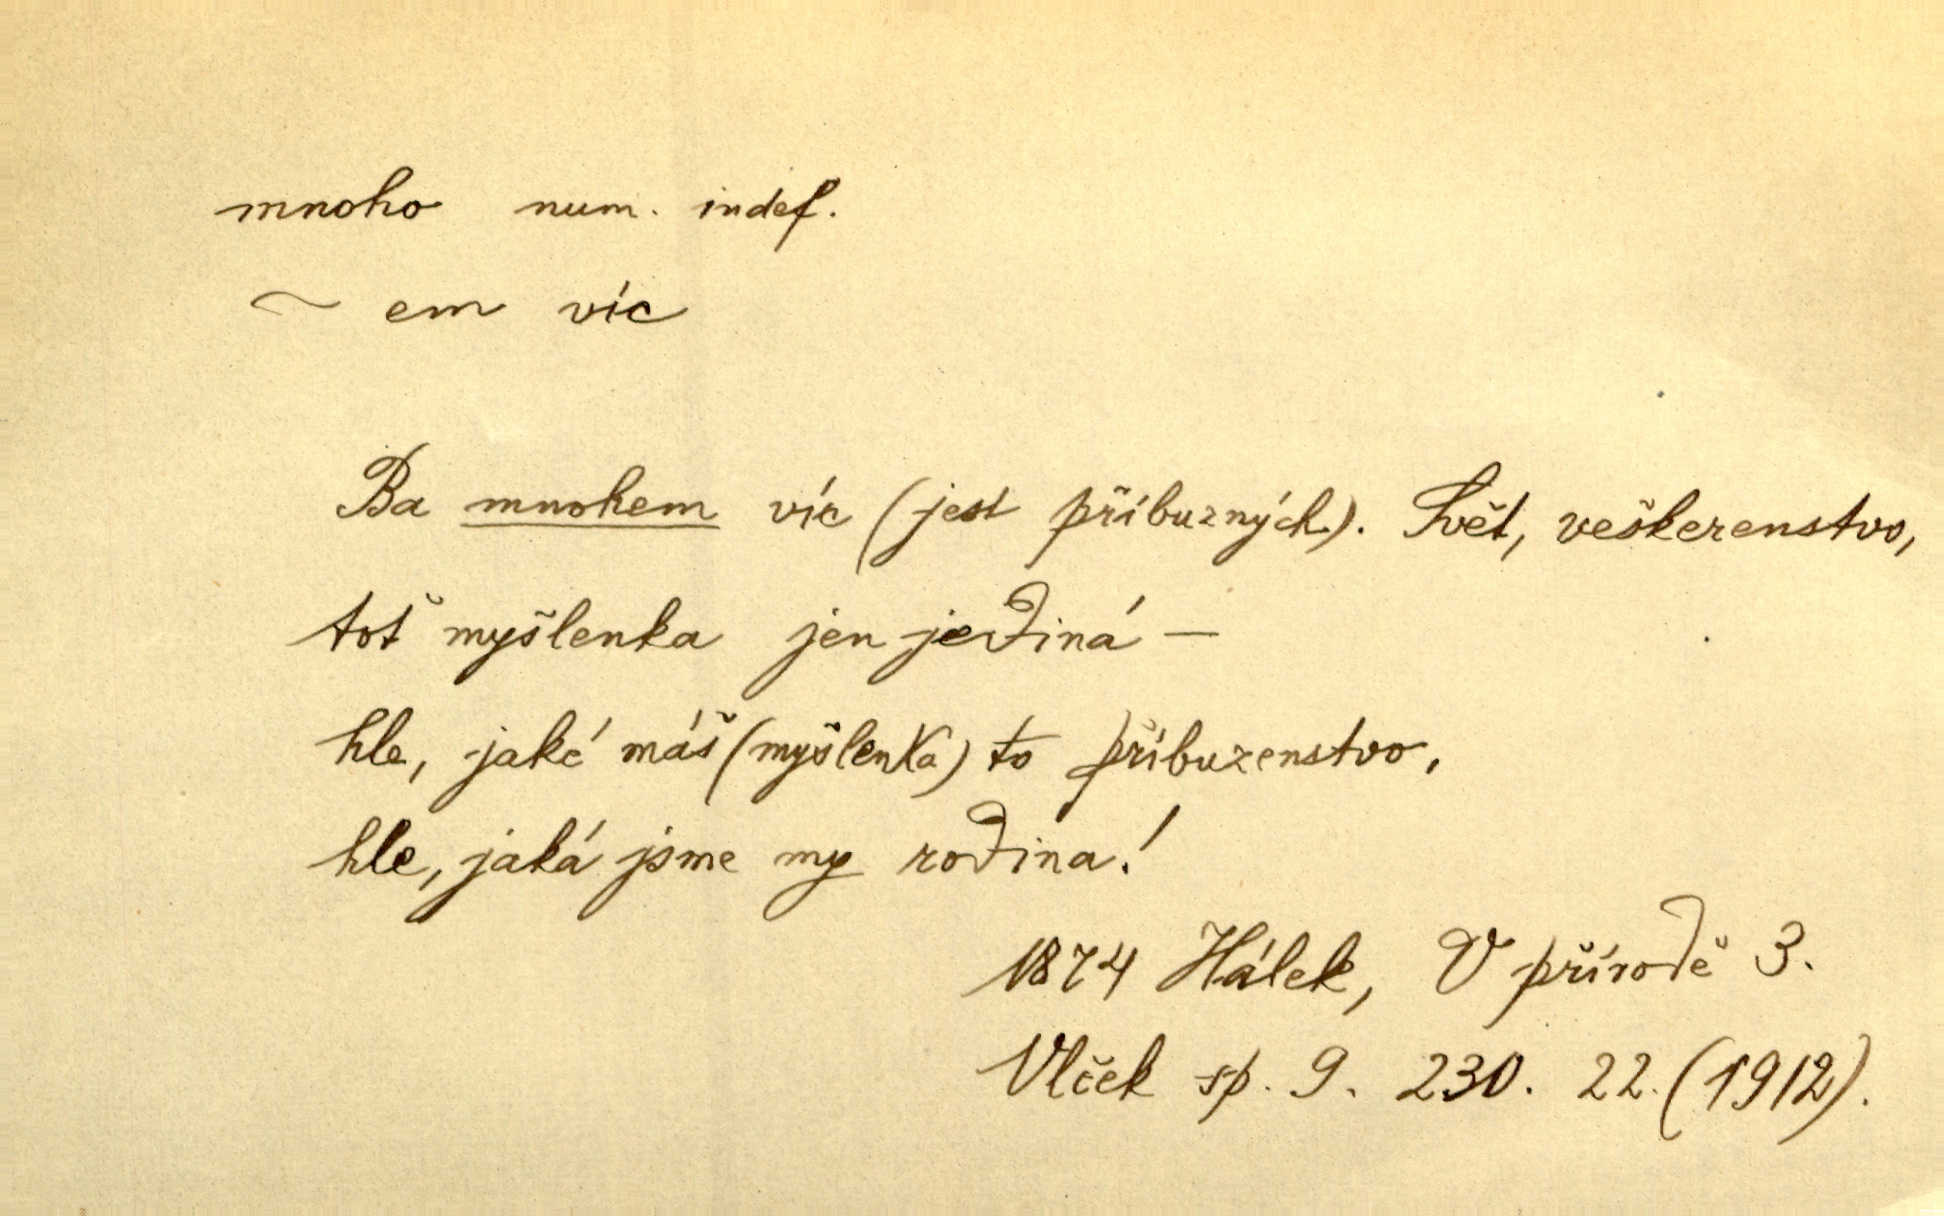 mnoho num. indef.
~ em víc
Ba mnohem víc (jest příbuzných). Svět, veškerenstvo,
toť myšlenka jen jediná —
hle, jaké máš (myšlenka) to příbuzenstvo,
hle, jaká jsme my rodina!
1874 Hálek, V přírodě 3.
Vlček sp. 9. 230. 22. (1912).